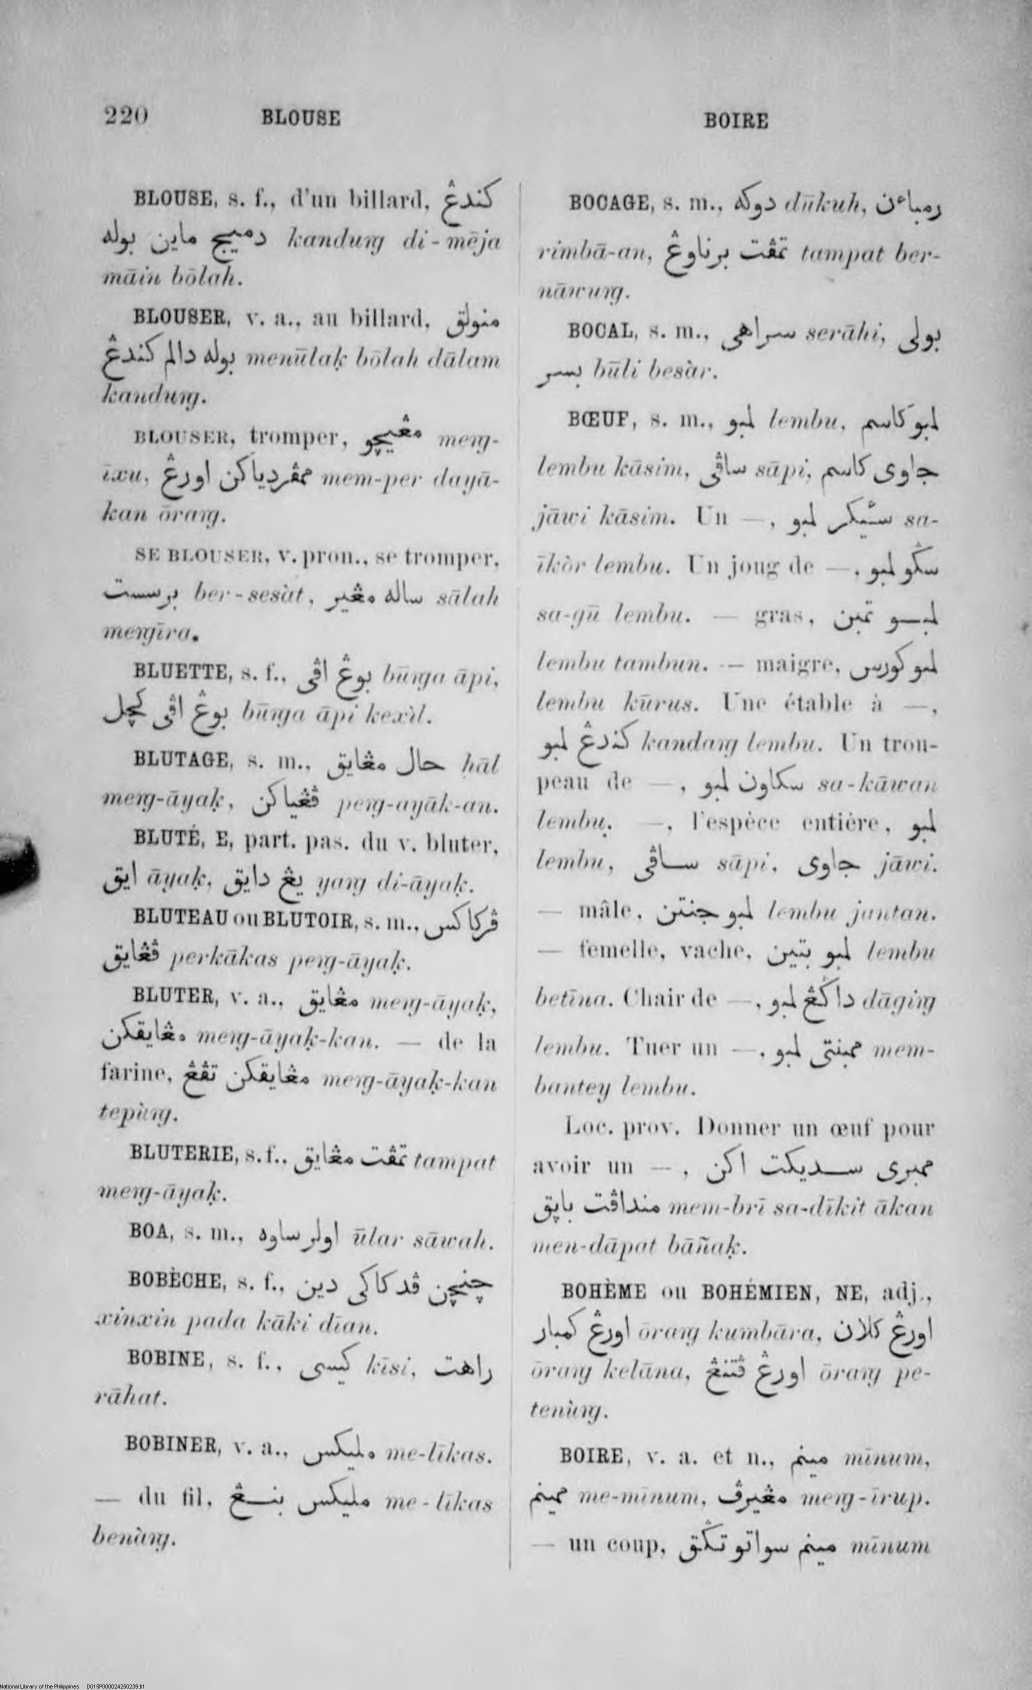 220 BLOUSE BOIRE
BLOUSE, s. f., d'un billard, كندڠ
دميج ماين بوله kanduṅg di-mēja
māin bōlah.
BLOUSER, v. a., au billard, منولق
بوله دالم كندڠ menūlaḳ bōlah dālam
kanduṅg.
BLOUSER, tromper, مڠيچو meṅg-
īxu, ممڤردياكن اورڠ mem-per dayā-
kan ōraṅg.
SE BLOUSER, v. pron., se tromper,
برسست ber-sesàt, ساله مڠير sālah
meṅgīra.
BLUETTE, s. f., بوڠ اڤى būṅga āpi,
بوڠ اڤى كچل būṅga āpi kexìl.
BLUTAGE, s. m., حال مڠايق ḥāl
meṅg-āyaḳ, ڤڠياكن peṅg-ayāk-an.
BLUTÉ, E, part. pas. du v. bluter,
ايق āyaḳ, يڠ دايق yaṅg di-āyaḳ.
BLUTEAU ou BLUTOIR, s. m., ڤركاكس
ڤڠايق perkākas peṅg-āyaḳ.
BLUTER, v. a., مڠايق meṅg-āyaḳ,
مڠايقكن meṅg-āyaḳ-kan. — de la
farine, مڠايقكن تڤڠ meṅg-āyaḳ-kan
tepùṅg.
BLUTERIE, s. f., تمڤت مڠايق tampat
meṅg-āyaḳ.
BOA, s. m., اولر ساوه ūlar sāwah.
BOBÈCHE, s. f., چنچن ڤد كاكى دين
xinxin pada kāki dīan.
BOBINE, s. f., كيسى kīsi, راهت
rāhat.
BOBINER, v. a., مليكس me-līkas.
— du fil, مليكس بنڠ me-līkas
benàṅg.
BOCAGE, s. m., دوكه dūkuh, رمباءن
rimbā-an, تمڤت برناوڠ tampat ber-
nāwuṅg.
BOCAL, s. m., سراهى serāhi, بولى
بسر būli besàr.
BŒUF, s. m., لمبو lembu, لمبو كاسم
lembu kāsim, ساڤى sāpi, جاوى كاسم
jāwi kāsim. Un —, سئيكر لمبو sa-
īkòr lembu. Un joug de —, سڬو لمبو
sa-gū lembu. — gras, لمبو تمبن
lembu tambun. — maigre, لمبو كورس
lembu kūrus. Une étable à —,
كندڠ لمبو kandaṅg lembu. Un trou-
peau de —, سكاون لمبو sa-kāwan
lembu. —, l'espèce entière, لمبو
lembu, ساڤى sāpi, جاوى jāwi.
— mâle, لمبو جنتن lembu jantan.
— femelle, vache, لمبو بتين lembu
betīna. Chair de —, داڬڠ لمبو dāgiṅg
lembu. Tuer un —, ممبنتى لمبو mem-
bantey lembu.
Loc. prov. Donner un œuf pour
avoir un —, ممبرى سديكت اكن
منداڤت باڽق mem-brī sa-dīkit ākan
men-dāpat bāñaḳ.
BOHÈME ou BOHÉMIEN, NE, adj.,
اورڠ كمبار ōraṅg kumbāra, اورڠ كلان
ōraṅg kelāna, اورڠ ڤتنڠ ōraṅg pe-
tenùṅg.
BOIRE, v. a. et n., مينم mīnum,
ممينم me-mīnum, مڠيرڤ meṅg-īrup.
— un coup, مينم سواتو تڬق mīnum
National Library of the Philippines